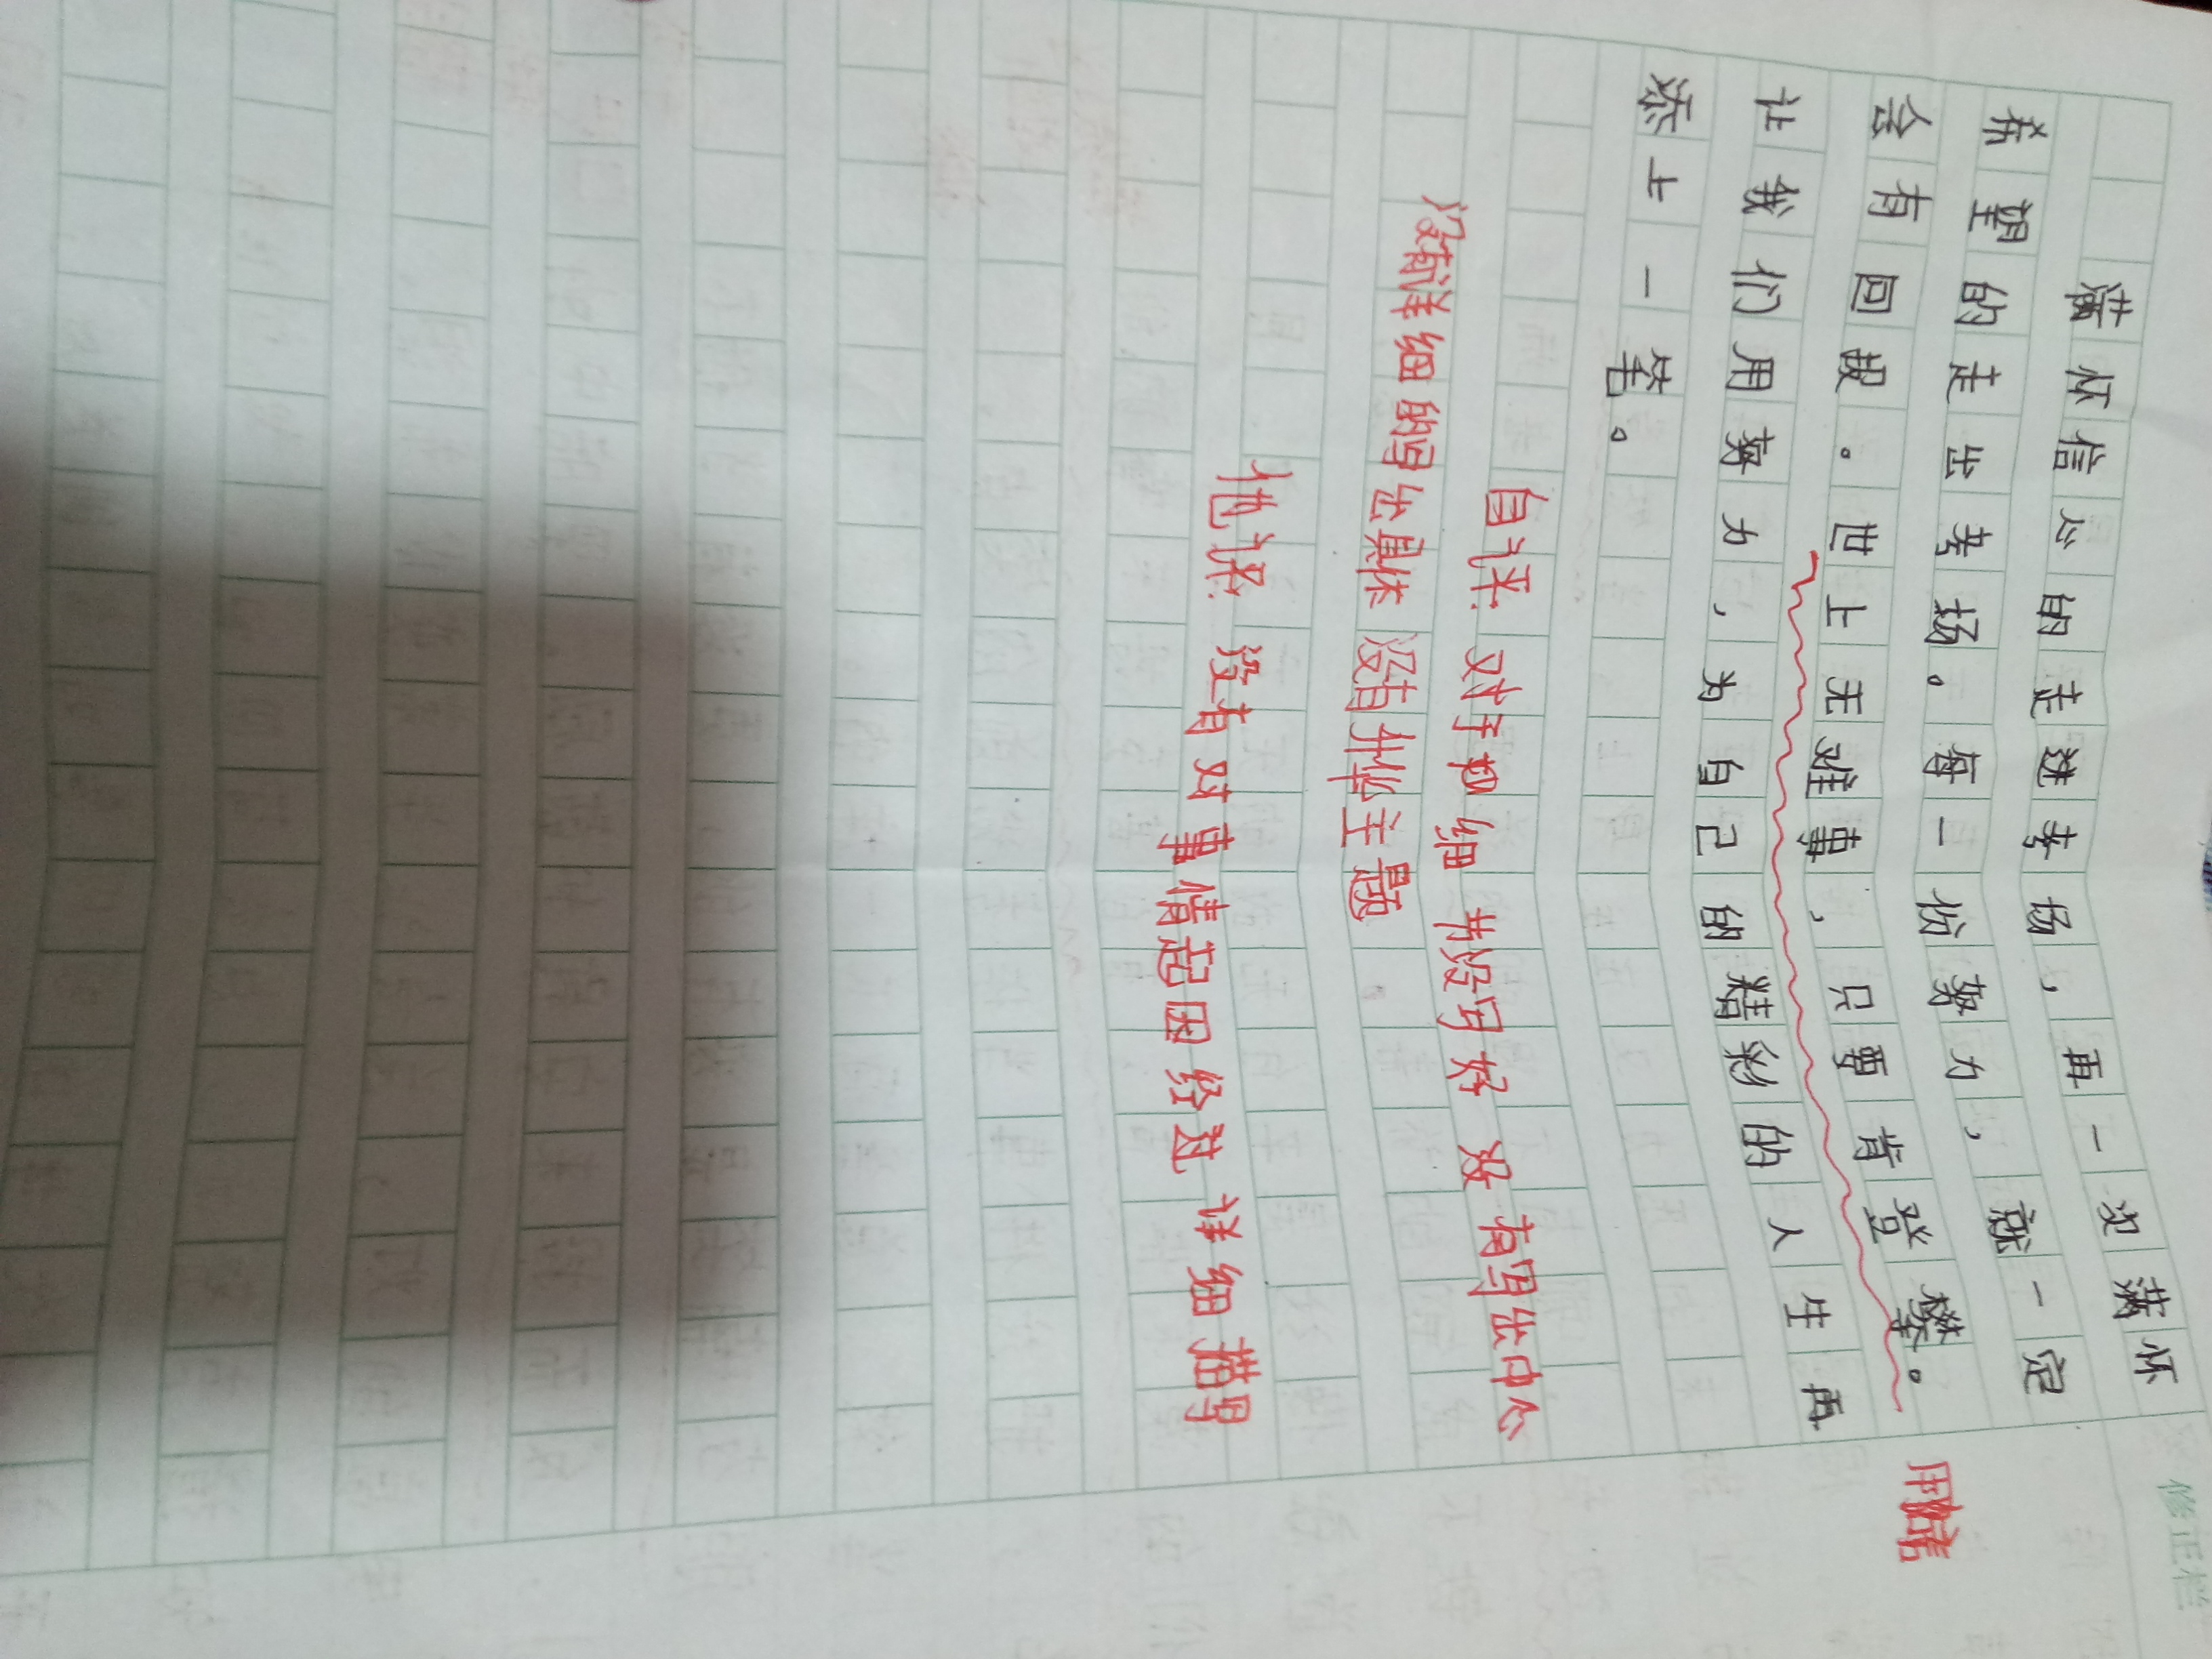 满怀信心的走进考场，再一次满怀
希望的走出考场。每一份努力，就一定
会有回报。世上无难事，只要肯登攀。
让我们用努力，为自己的精彩的人生再
添上一笔。
用谚语
自评 对手和细节没写好 没有写出中心
没有详细的写出具体 没有升华主题
他评 没有对事情起因经过详细描写
修正栏